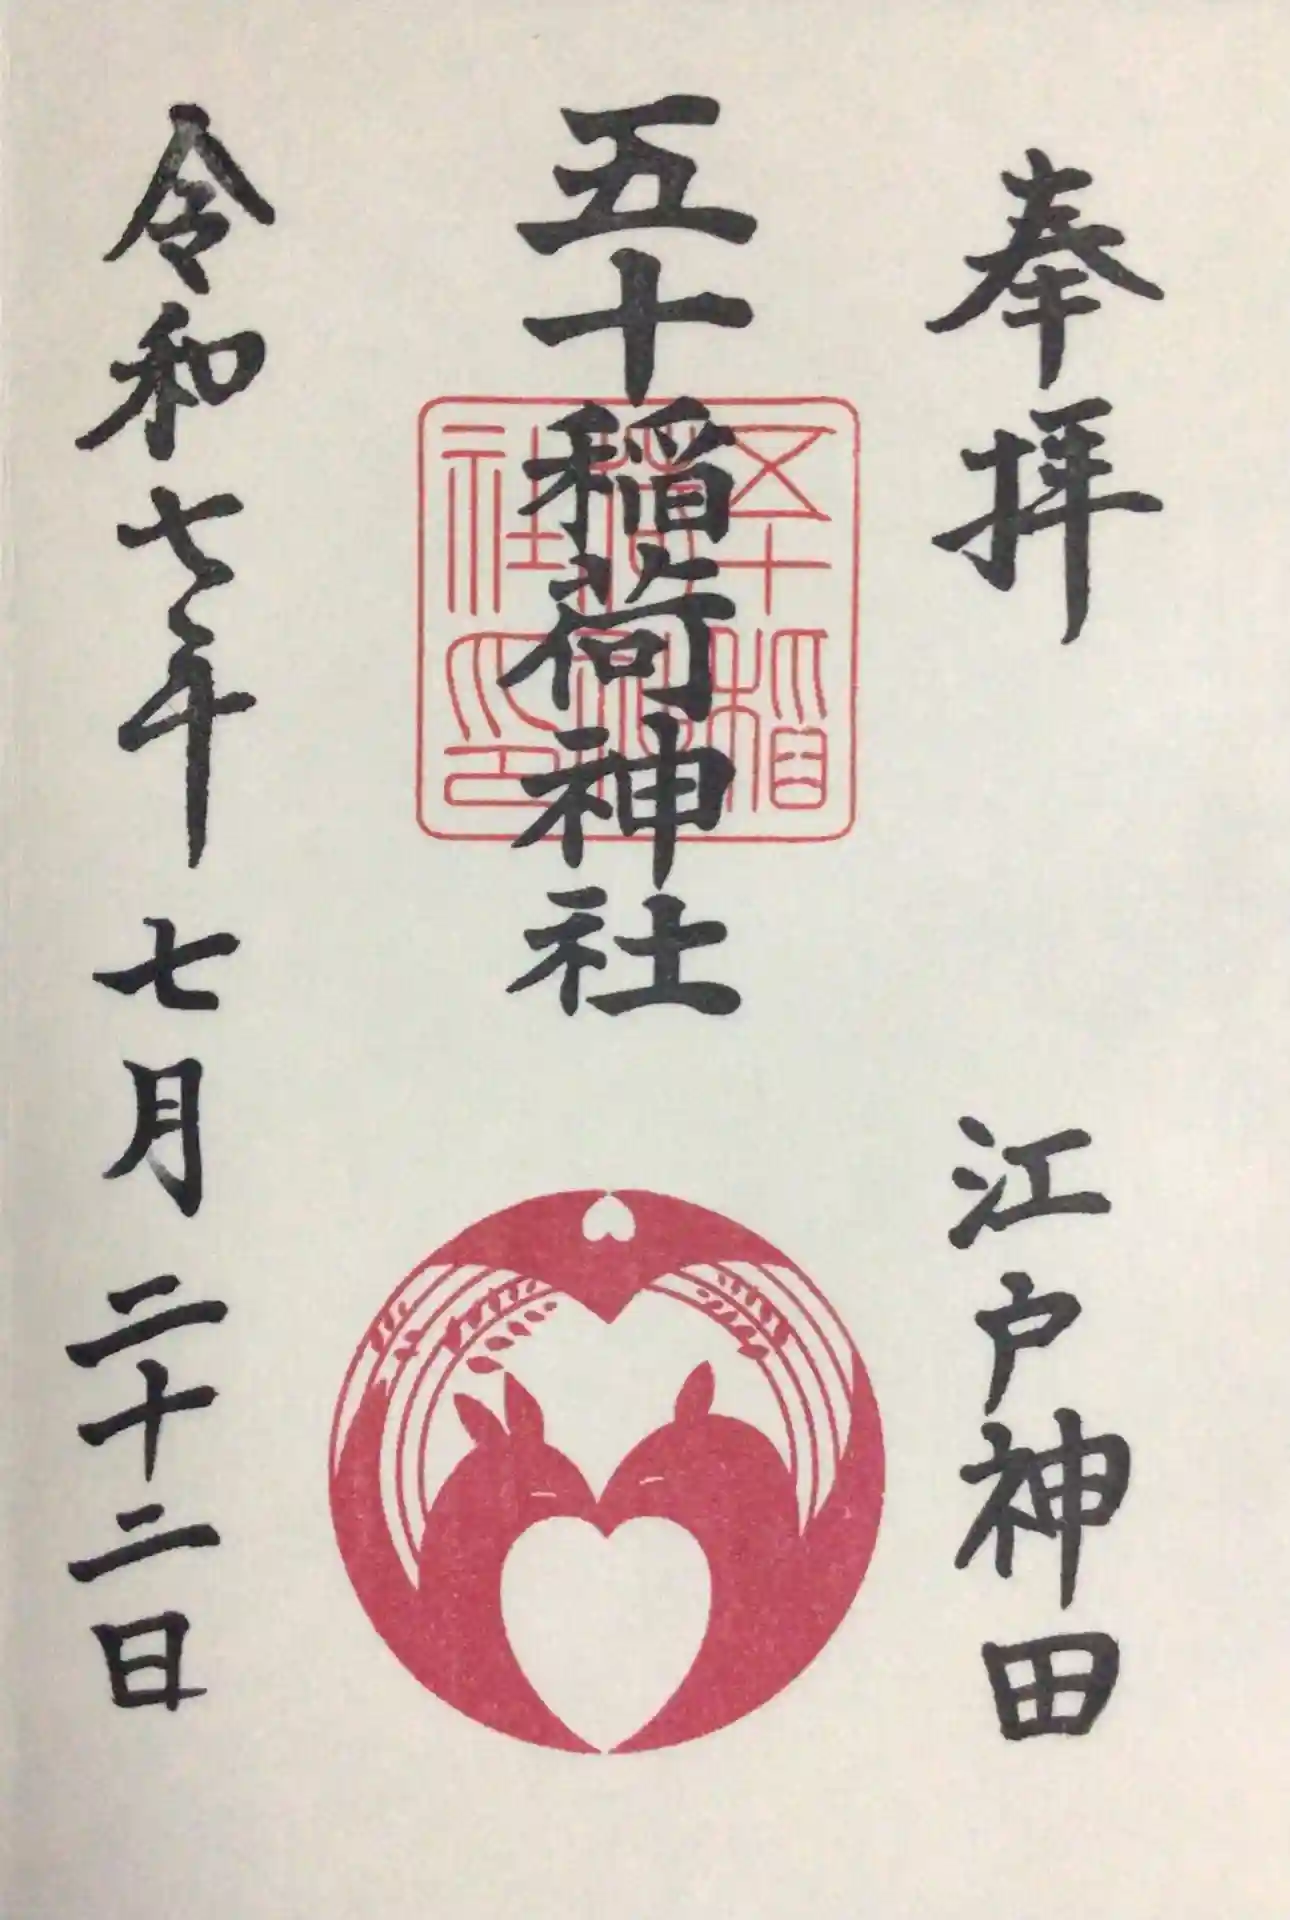 奉拝
江戸神田
五十稲荷神社
五十稲荷神社印
令和七年七月二十二日